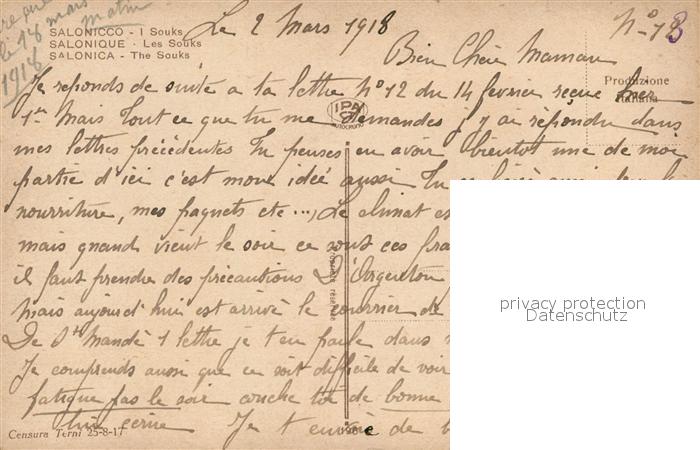 reçue
le 18 mars
matin
1918
SALONICCO - I Souks
SALONIQUE - Les Souks
SALONICA - The Souks
Le 2 Mars 1918
N° 18
Bien Chère Maman
Produzione
Italiana
Je reponds de suite a ta lettre N° 12 du 14 fevrier reçue hier
1er Mars Tout ce que tu me demandes j'y ai répondu dans
IPA
AUTOCROMO
mes lettres précédentes Tu penses en avoir bientot une de moi
partie d'ici c'est mon idée aussi Tu
nourriture, mes paquets etc ..., Le climat es
mais quand vient le soir ce sont ces
il faut prendre des précautions D'Argenton
mais aujourd'hui est arrivé le courrier de
De St Mandé 1 lettre je t'en parle dans
Je comprends aussi que ce soit difficile de voir
fatigue pas le soir couche toi de bonne
écrire Je t'envoie de
Censura Terni 25-8-17
privacy protection
Datenschutz